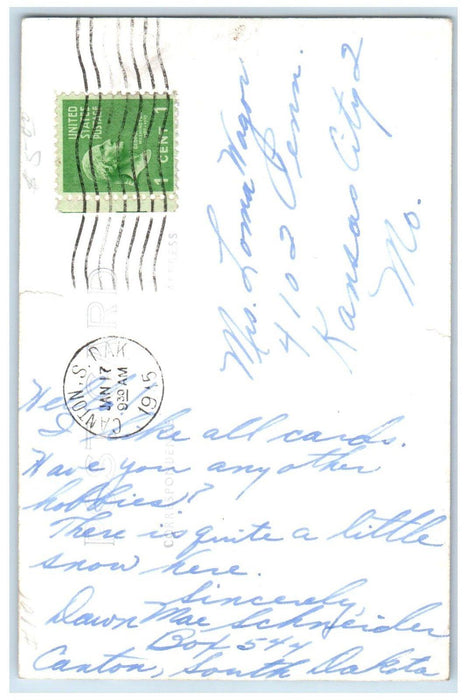 UNITED
STATES
POSTAGE
1 CENT 1
CANTON, S. DAK
JAN 17
9 30 AM
1945
Mrs. Lorna Wagor
4102 Penn.
Kansas City 2
Mo.
I like all cards.
Have you any other
hobbies?
There is quite a little
snow here.
Sincerely,
Dawn Mae Schneider
Box 544
Canton, South Dakota